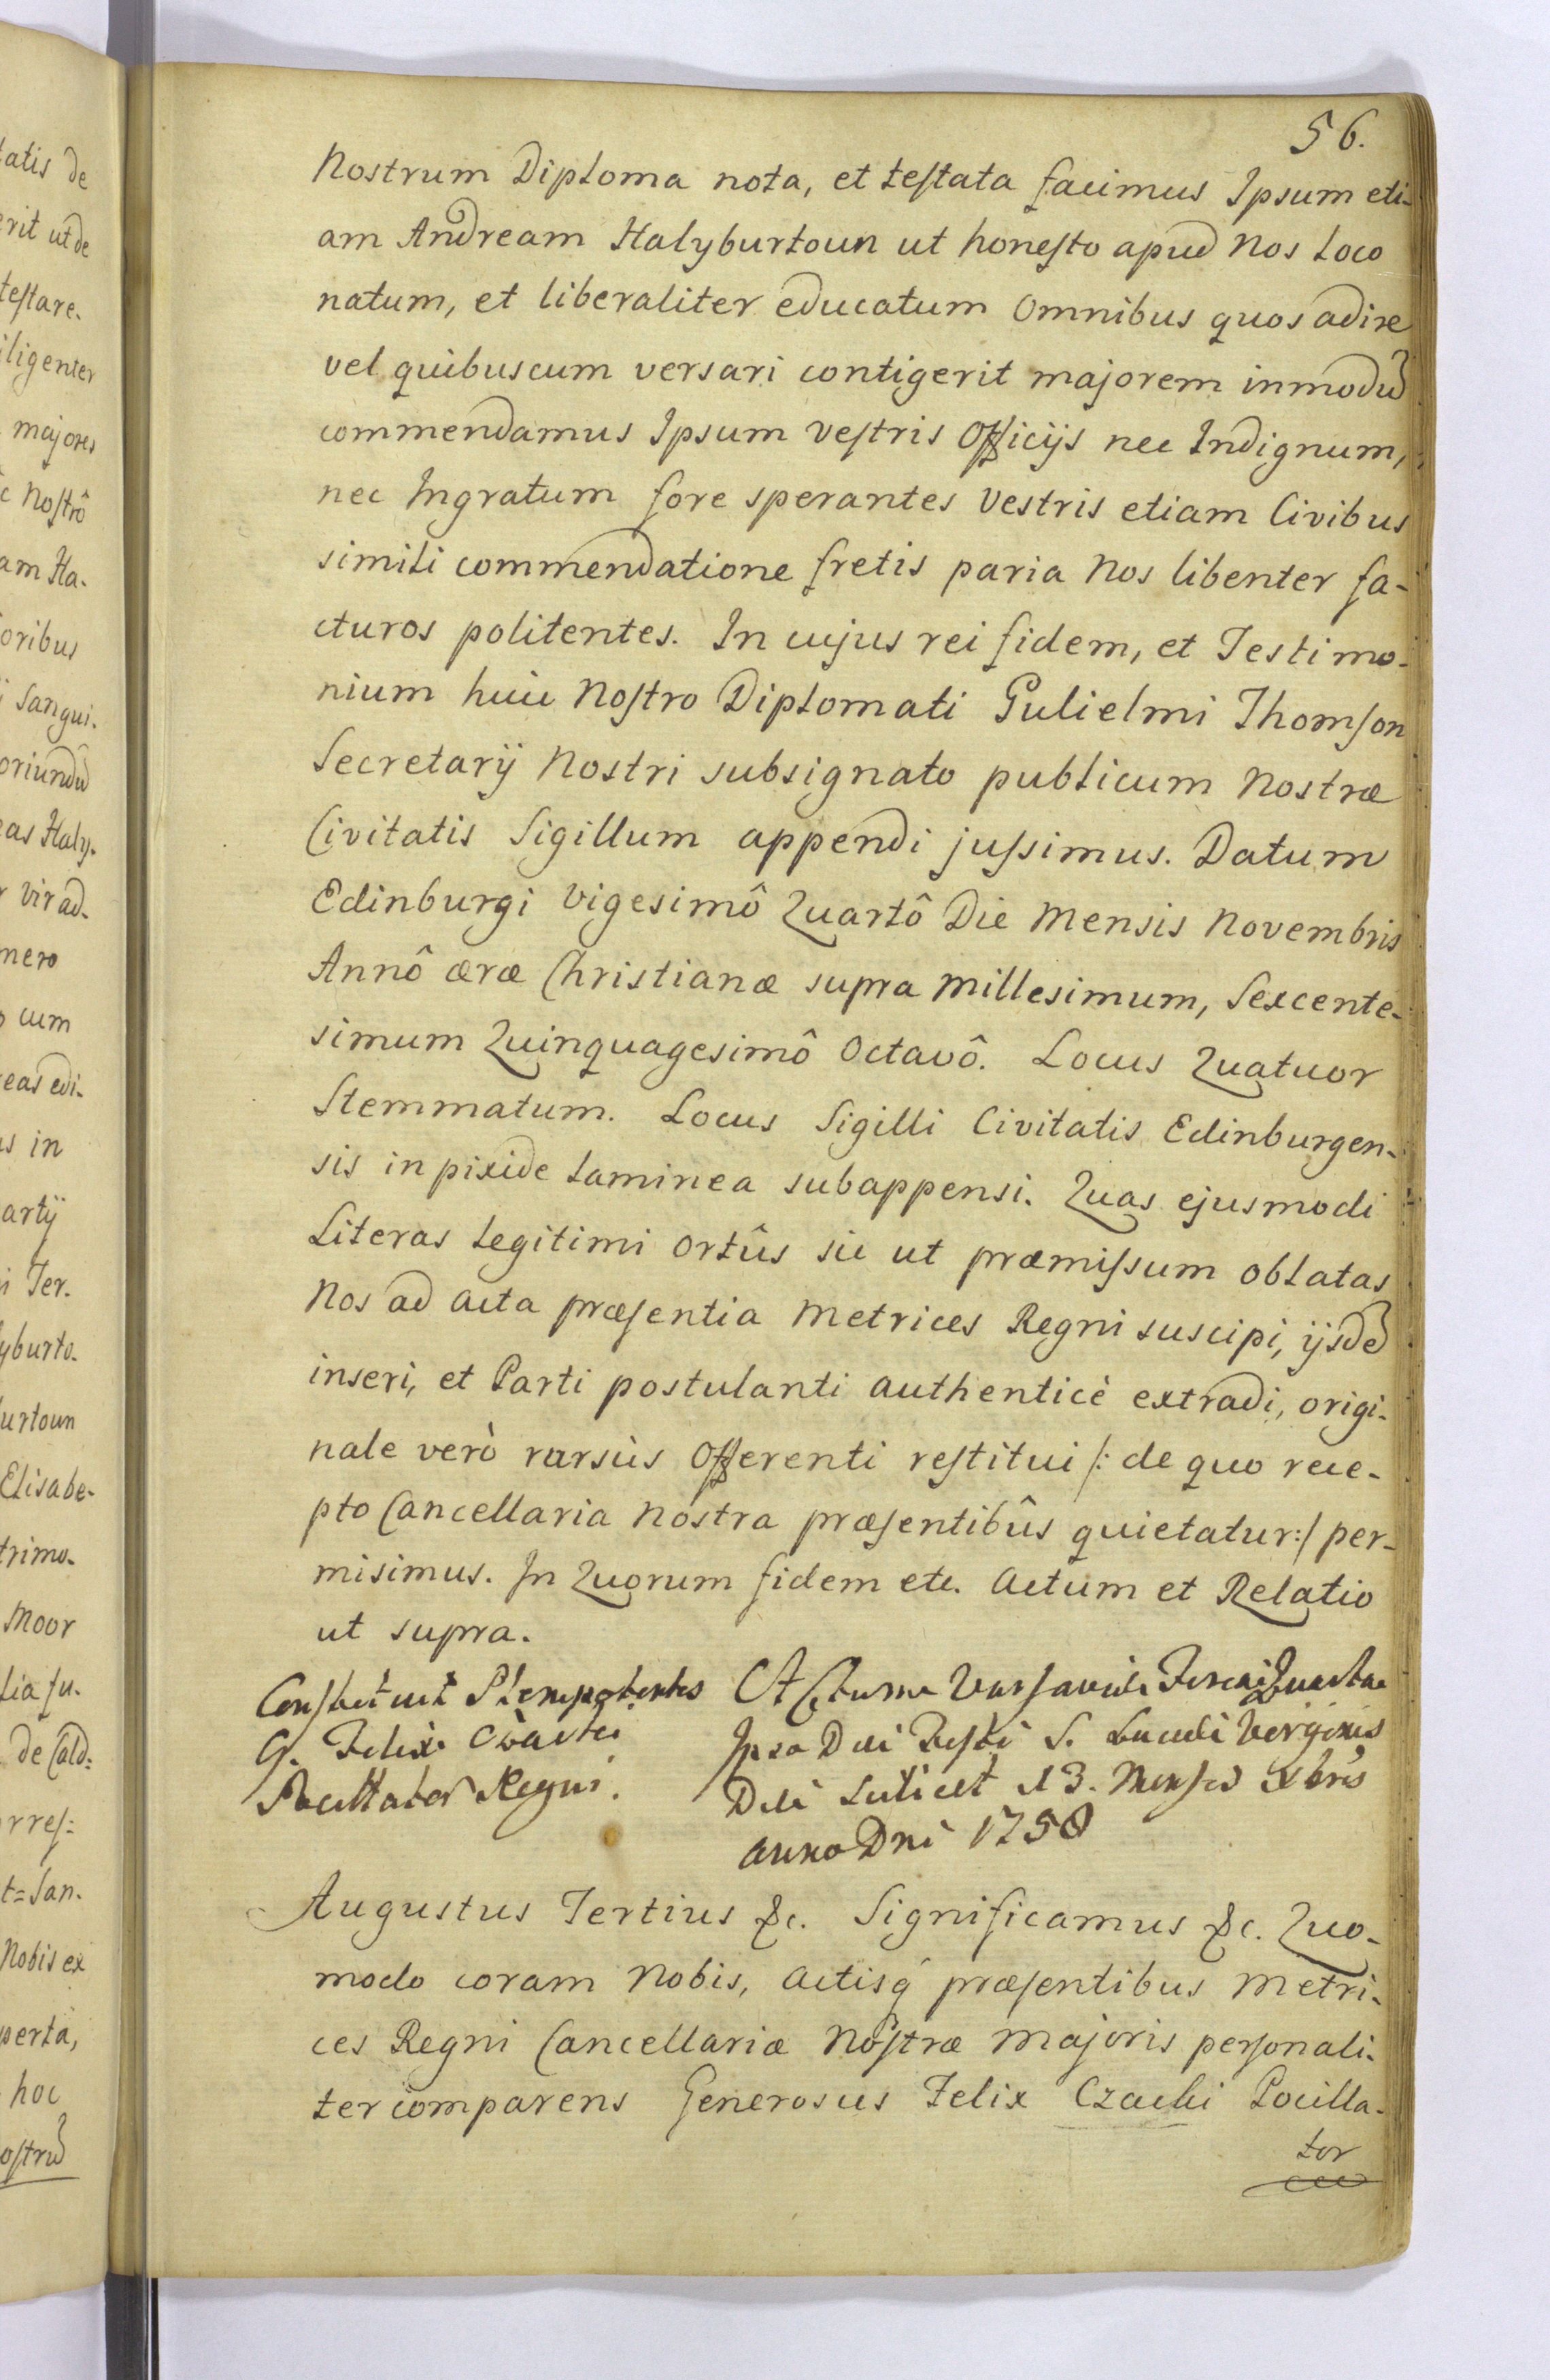 56.
Nostrum Diploma nota, et testata facimus Ipsum eti-
am Andream Halyburtoun ut honesto apud Nos loco
natum, et liberaliter educatum Omnibus quos adire
vel quibuscum versari contigerit majorem inmodũ
commendamus Ipsum vestris Officijs nec Indignum,
nec Ingratum fore sperantes Vestris etiam Civibus
simili commendatione fretis paria Nos libenter fa-
cturos politentes. In cujus rei fidem, et Testimo-
nium huic Nostro Diplomati Gulielmi Thomson
Secretarij Nostri subsignato publicum Nostræ
Civitatis Sigillum appendi jussimus. Datum
Edinburgi Vigesimô Quartô Die Mensis Novembris
Annô æræ Christianæ supra Millesimum, Sexcente-
simum Quinquagesimô Octavô. Locus Quatuor
Stemmatum. Locus Sigilli Civitatis Edinburgen-
sis in pixide laminea subappensi. Quas ejusmodi
Literas legitimi Ortûs sic ut præmissum oblatas
Nos ad acta præsentia Metrices Regni suscipi, ijsdẽ
inseri, et Parti postulanti authenticè extradi, origi-
nale verò rursùs Offerenti restitui /: de quo rece-
pto Cancellaria Nostra præsentibûs quietatur :/ per-
misimus. In Quorum fidem etc. Actum et Relatio
ut supra.
Constituit Plenipotentes
G. Felix Czacki
Pocillator Regni.
Actum Varsaviæ Feria Quarta
Ipso Die Festi S. Luciæ Virginis
Die scilicet 13. Mensis Xbris
anno Dni 1758
Augustus Tertius &c. Significamus &c. Quo-
modo coram Nobis, Actisq́ præsentibus Metri-
ces Regni Cancellariæ Nostræ Majoris personali-
ter comparens Generosus Felix Czacki Pocilla-
tor
tatis de
erit ut de
testare.
iligenter
majores
c Nostrô
am Ha-
oribus
Sangui-
oriundũ
eas Haly-
vir ad-
mero
cum
reas edi-
us in
artij
i Ter.
lyburto-
urtoun
Elisabe-
trimo-
Moor
lia fu-
de Cald=
rres=
t= San-
Nobis ex
perta,
hoc
ostrũ